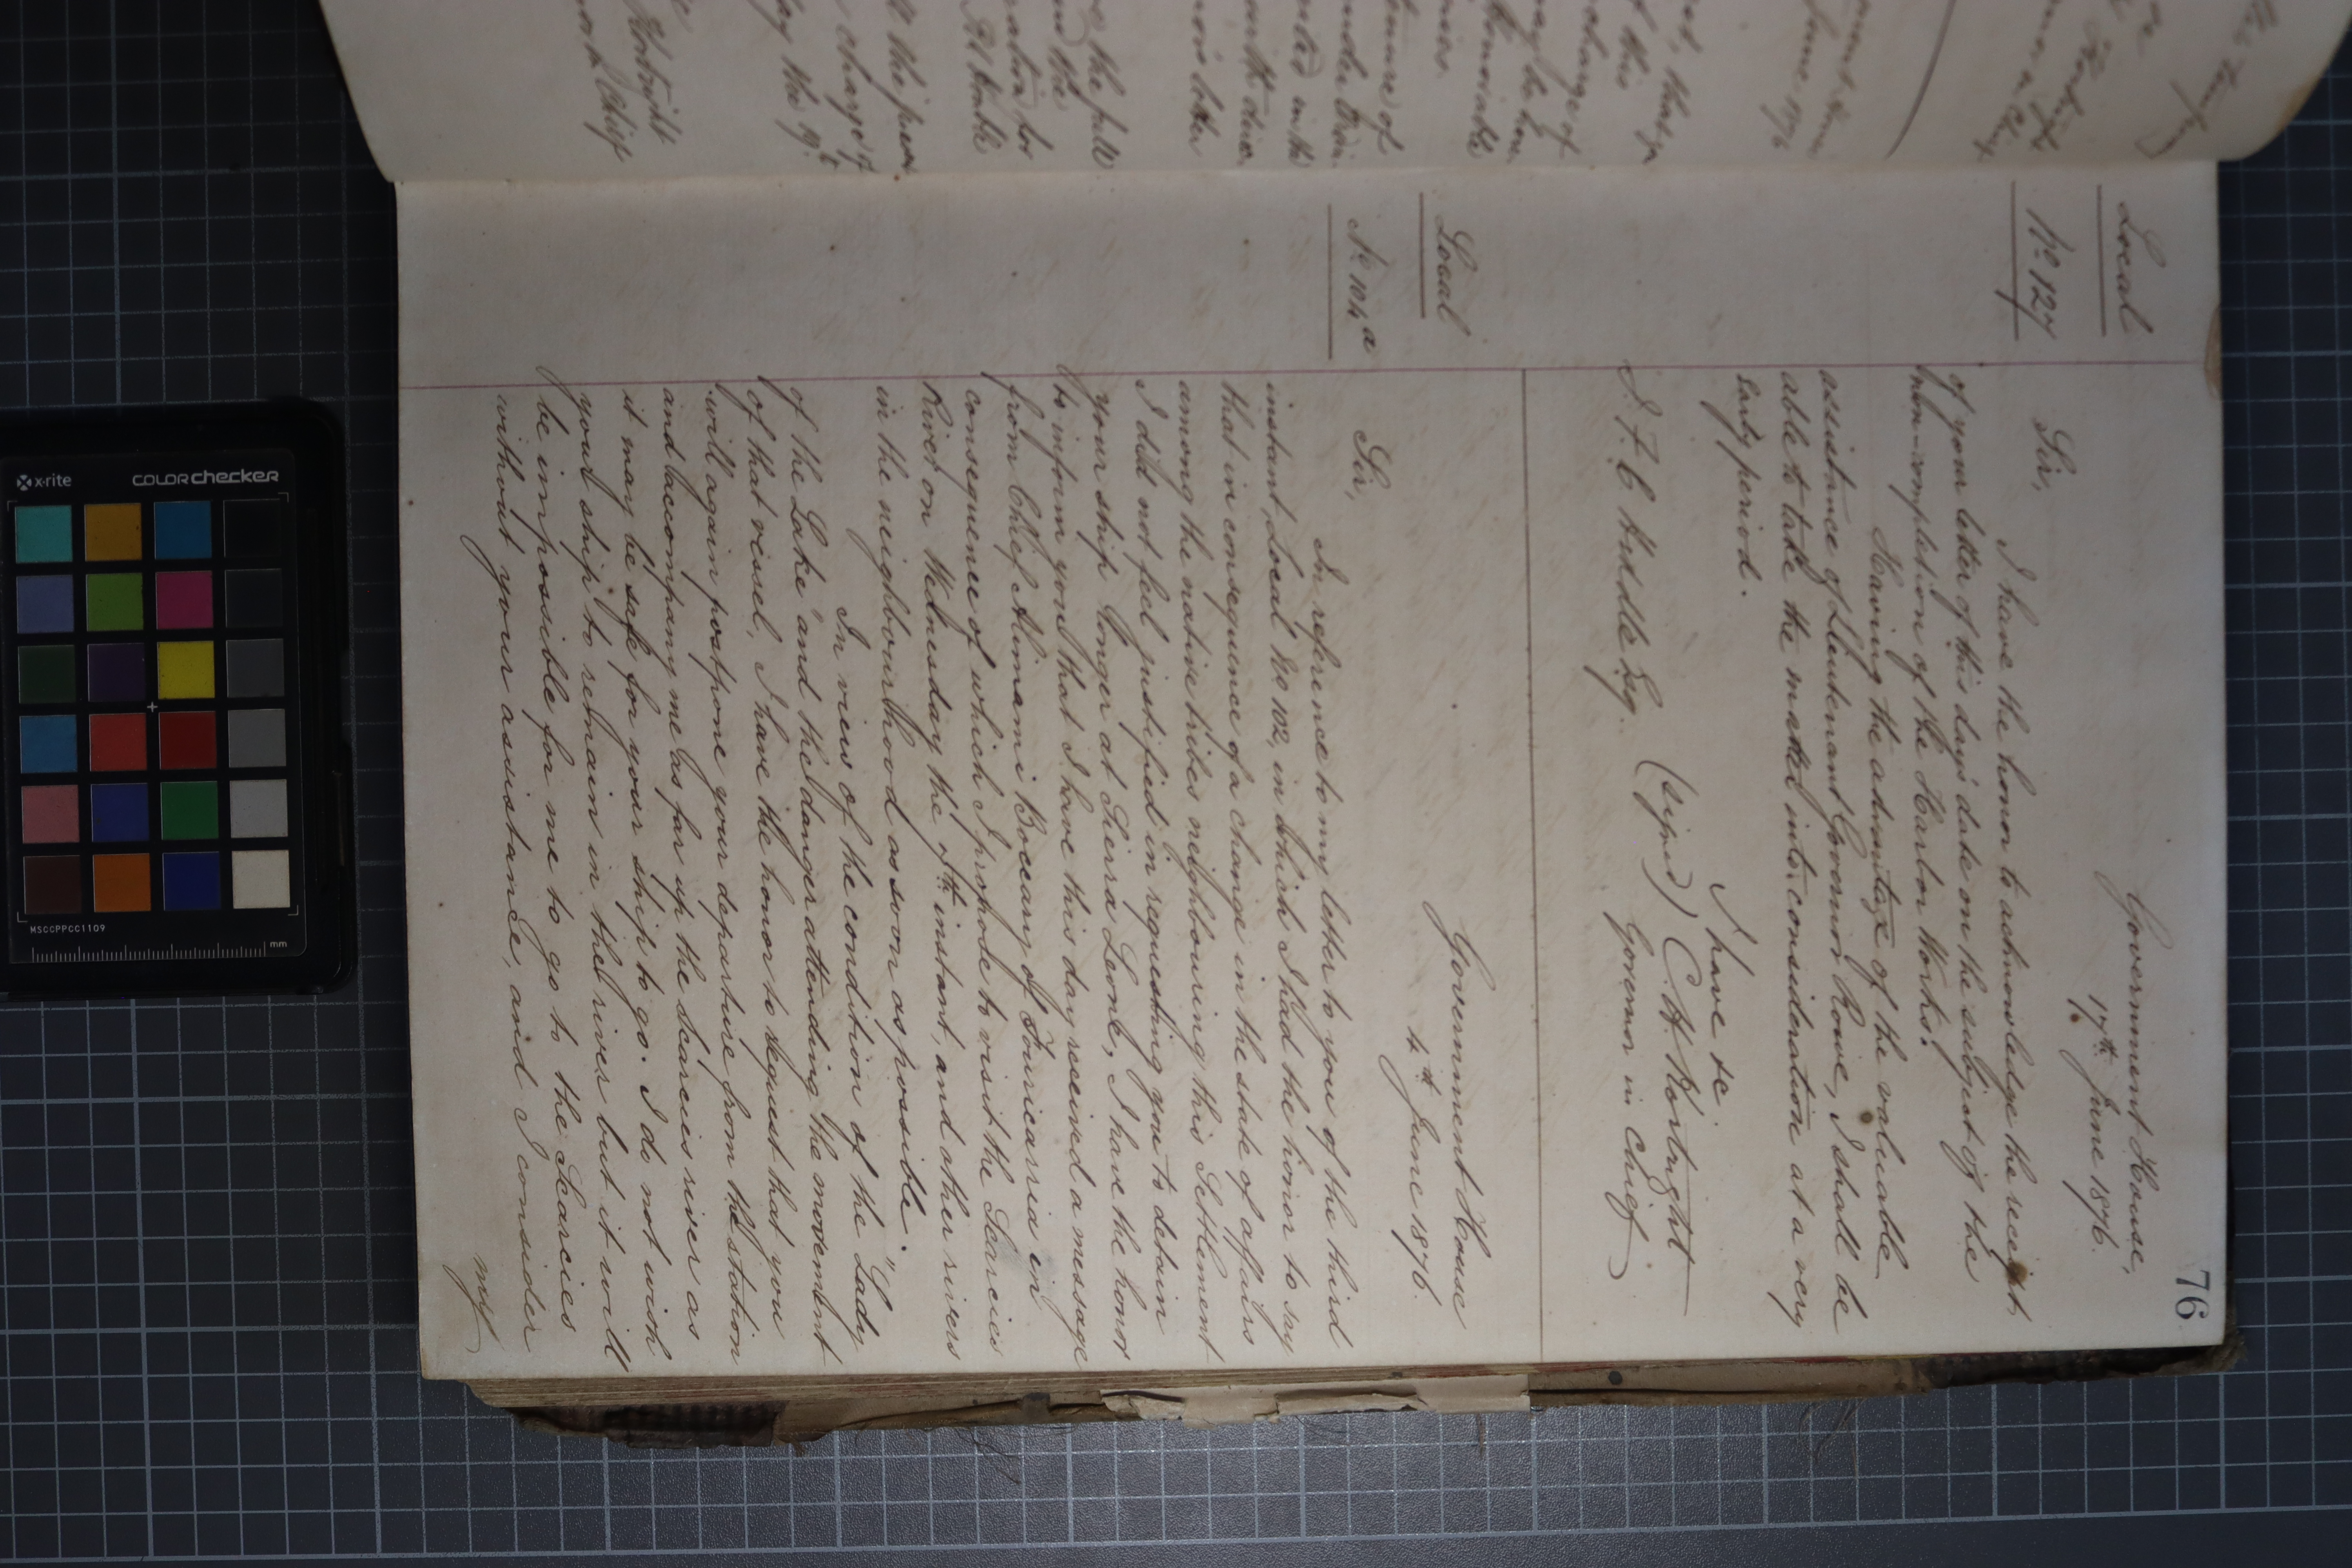 76
Local
No. 127
Government House,
17th June 1876.
Sir,
I have the honor to acknowledge the receipt
of your letter of this day's date on the subject of the
non-completion of the Harbor Works.
Having the advantage of the valuable
assistance of Lieutenant Governor Rowe, I shall be
able to take the matter into consideration at a very
early period.
I have &c.
(signed) C. H. Kortright
Governor in Chief
J. F. C. Hiddle Esq.
Local
No. 104a
Government House
4th June 1876.
Sir,
In reference to my letter to you of the third
instant, Local No 102, in which I had the honor to say
that in consequence of a change in the state of affairs
among the native tribes neighbouring this Settlement
I did not feel justified in requesting you to detain
your ship longer at Sierra Leone, I have the honor
to inform you that I have this day received a message
from Chief Alimami Bocary of Fouricarria in
consequence of which I propose to visit the Scarcies
River on Wednesday the 7th instant, and other rivers
in the neighbourhood as soon as possible.
In view of the condition of the "Lady
of the Lake" and the danger attending the movement
of that vessel, I have the honor to request that you
will again postpone your departure from the station
and accompany me as far up the Scarcies river as
it may be safe for your ship to go. I do not wish
your ship to remain in the river but it will
be impossible for me to go to the Scarcies
without your assistance, and I consider
my
x-rite
colorchecker
MSCCPPCC1109
mm